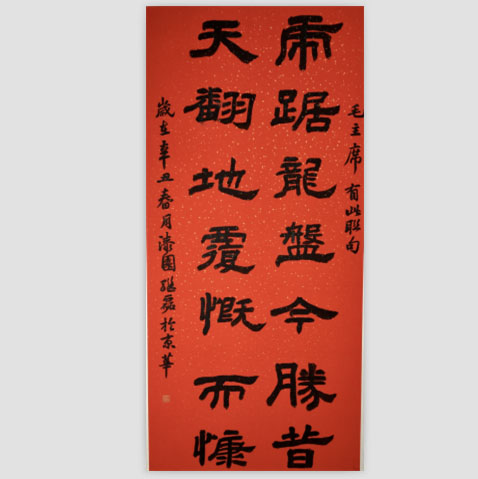 毛主席有此聯句
虎踞龍盤今勝昔
天翻地覆慨而慷
歲在辛丑春月漆園於京華